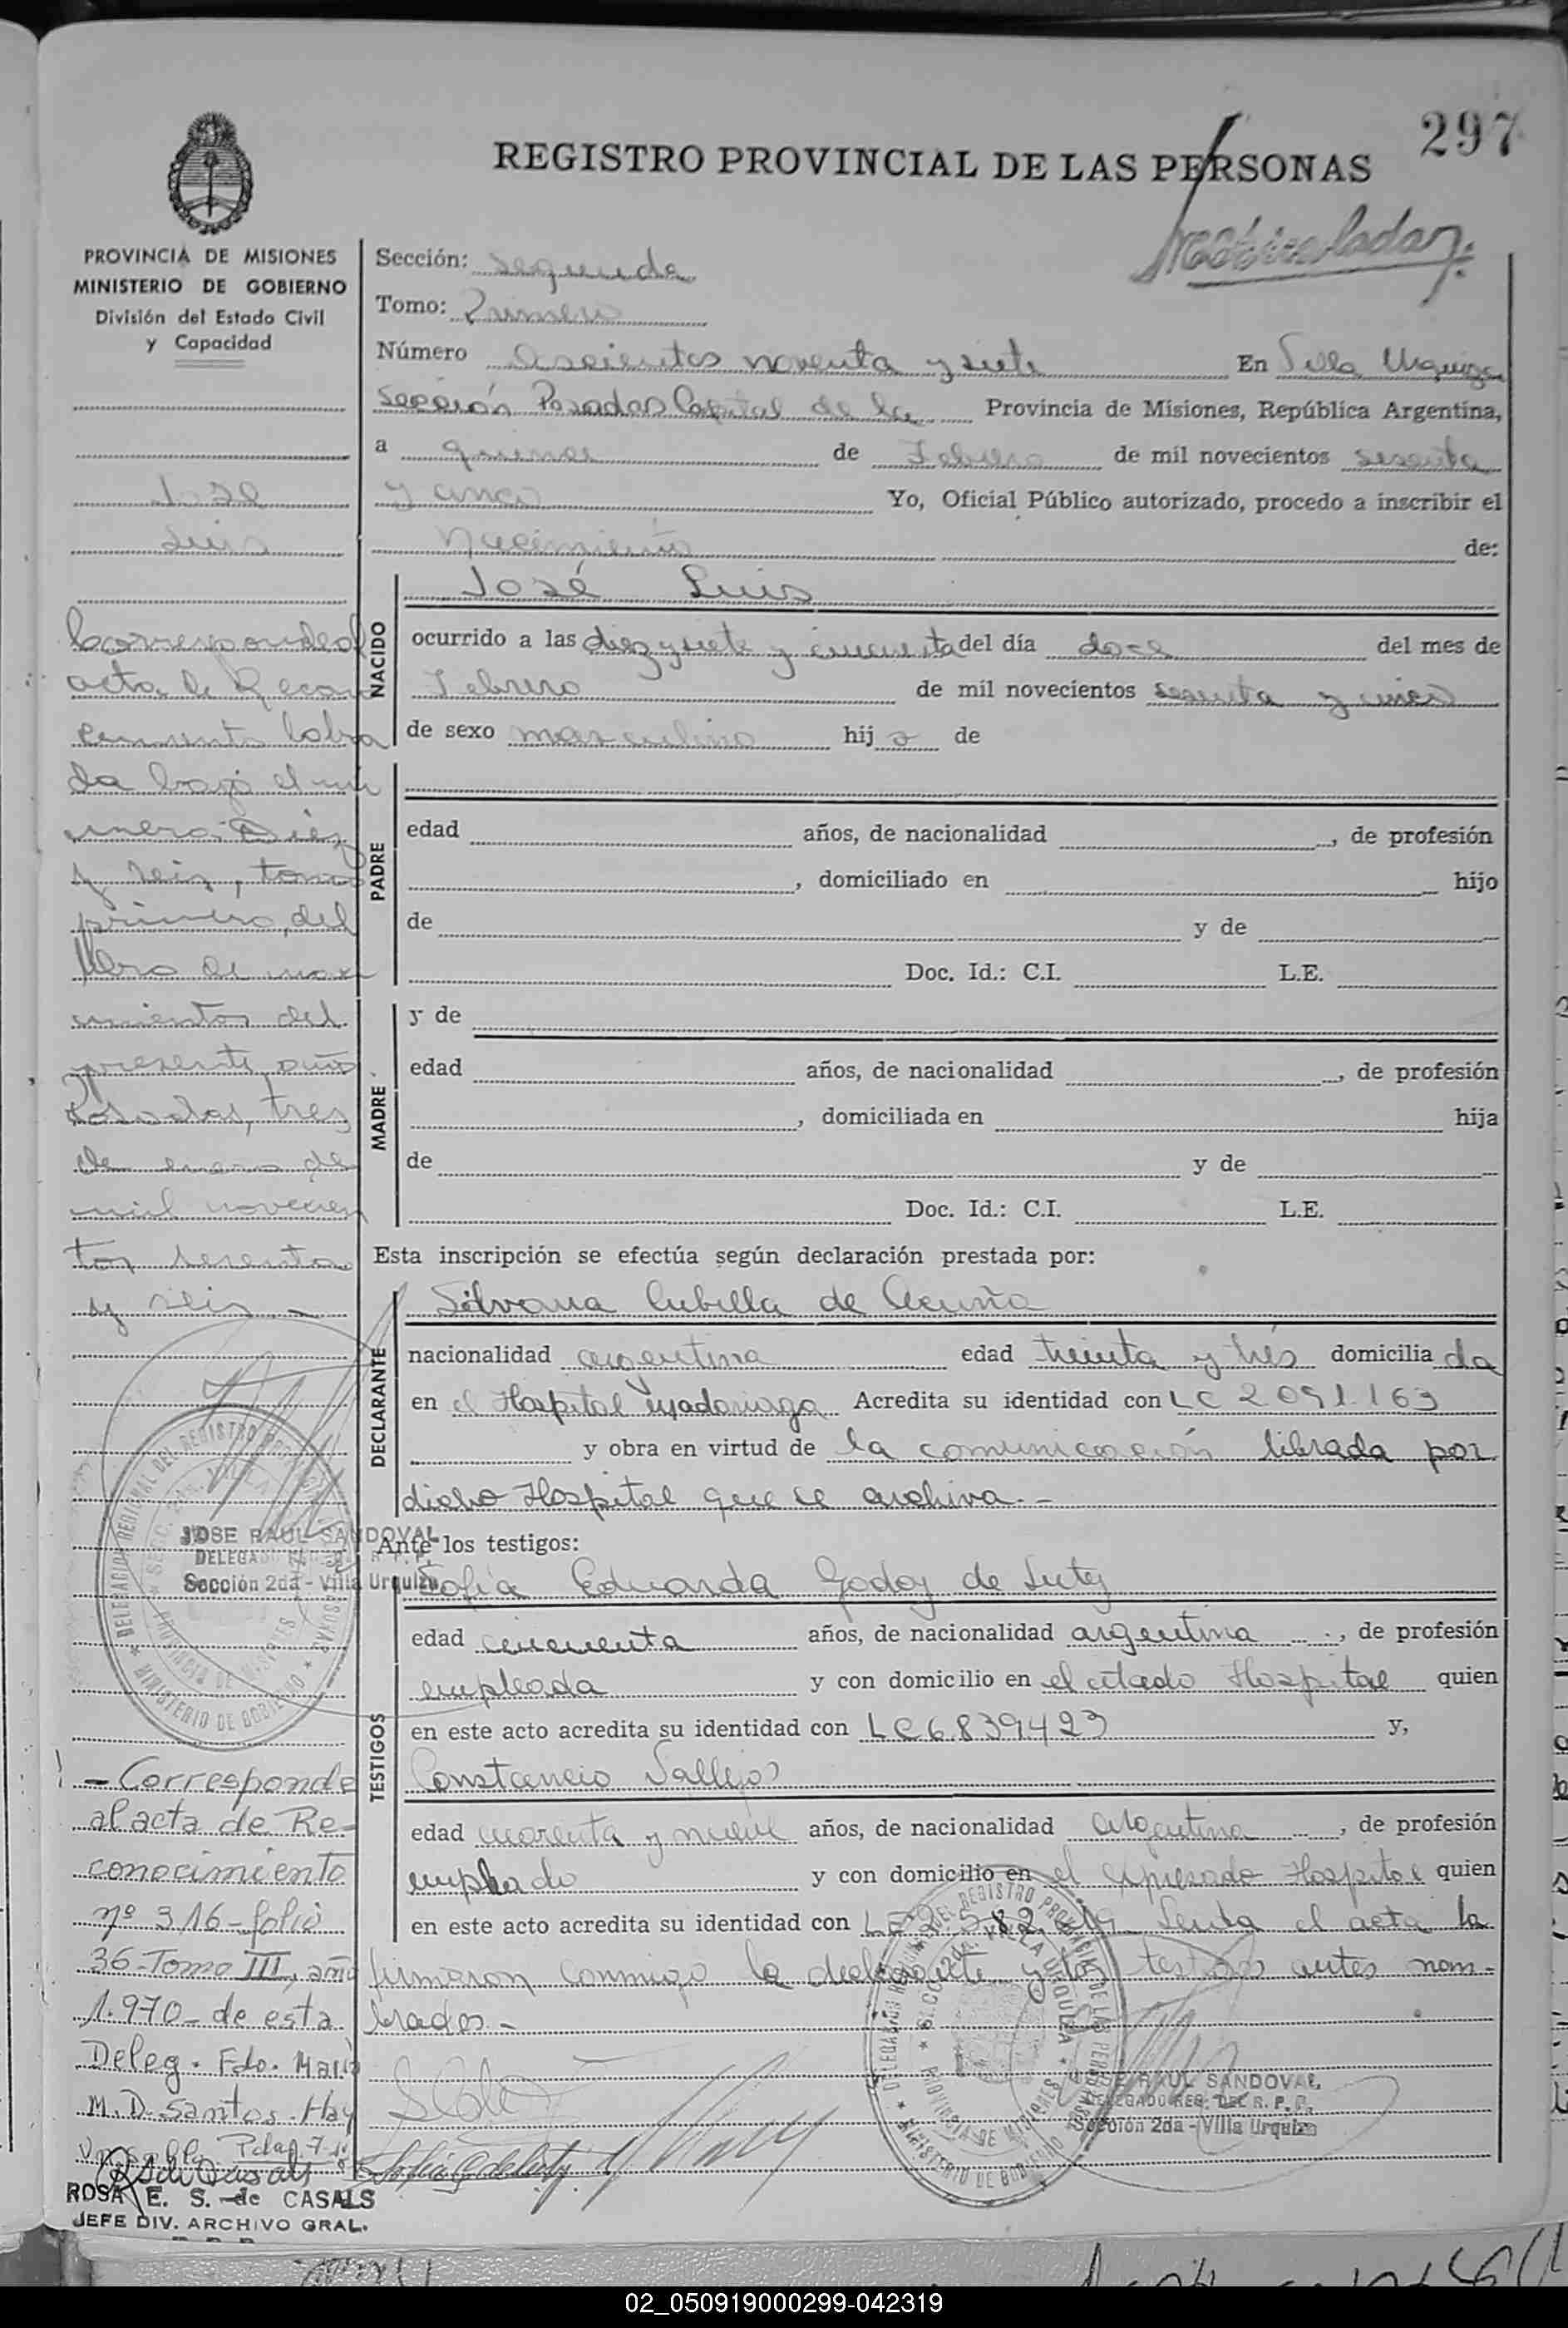 297
REGISTRO PROVINCIAL DE LAS PERSONAS
PROVINCIA DE MISIONES
MINISTERIO DE GOBIERNO
División del Estado Civil
y Capacidad
Sección: segunda
Tomo: Primero
Número doscientos noventa y siete En Villa Urquiza
Sección Posadas Capital de la Provincia de Misiones, República Argentina,
a quince de Febrero de mil novecientos sesenta
y cinco Yo, Oficial Público autorizado, procedo a inscribir el
nacimiento de:
José
Luis
NACIDO
José Luis
ocurrido a las diez y siete y cincuenta del día doce del mes de
Febrero de mil novecientos sesenta y cinco
de sexo masculino hijo de
PADRE
edad años, de nacionalidad , de profesión
, domiciliado en hijo
de y de
Doc. Id.: C.I. L.E.
MADRE
y de
edad años, de nacionalidad , de profesión
, domiciliada en hija
de y de
Doc. Id.: C.I. L.E.
Esta inscripción se efectúa según declaración prestada por:
DECLARANTE
Silvana Cubilla de Acuña
nacionalidad argentina edad treinta y trés domiciliada
en el Hospital Madariaga Acredita su identidad con LC 2.091.163
y obra en virtud de la comunicación librada por
dicho Hospital que se archiva.-
Ante los testigos:
TESTIGOS
Sofia Eduarda Godoy de
edad cincuenta años, de nacionalidad argentina, de profesión
empleada y con domicilio en el citado Hospital quien
en este acto acredita su identidad con LC 6.839.423 y,
Constancio Vallejos
edad cuarenta y nueve años, de nacionalidad argentina, de profesión
empleado y con domicilio en el expresado Hospital quien
en este acto acredita su identidad con el acta la
firmaron conmigo la declarante y los testigos antes nom-
brados.-
Corresponde al
acta de Recono
cimiento labra
da bajo el nú
mero Diez
y seis, tomo
primero, del
libro de naci
mientos del
presente año
Posadas, tres
de enero de
mil novecien
tos sesenta
y seis.-
JOSE RAUL SANDOVAL
DELEGADO REG. DEL R. P. P.
Sección 2da - Villa Urquiza
DELEGACION REGIONAL DEL REGISTRO PROVINCIAL DE LAS PERSONAS
MINISTERIO DE GOBIERNO
PROVINCIA DE MISIONES
- Corresponde
al acta de Re-
conocimiento
nº 316-folio
36-Tomo III, año
1.970- de esta
Deleg. Fdo. María
M. D. Santos. Hay
ROSA E. S. de CASALS
JEFE DIV. ARCHIVO GRAL.
DELEGACION REGIONAL DEL REGISTRO PROVINCIAL DE LAS PERSONAS
SECC. 2da. VILLA URQUIZA
PROVINCIA DE MISIONES
MINISTERIO DE GOBIERNO
JOSE RAUL SANDOVAL
DELEGADO REG. DEL R. P. P.
Sección 2da - Villa Urquiza
02_050919000299-042319